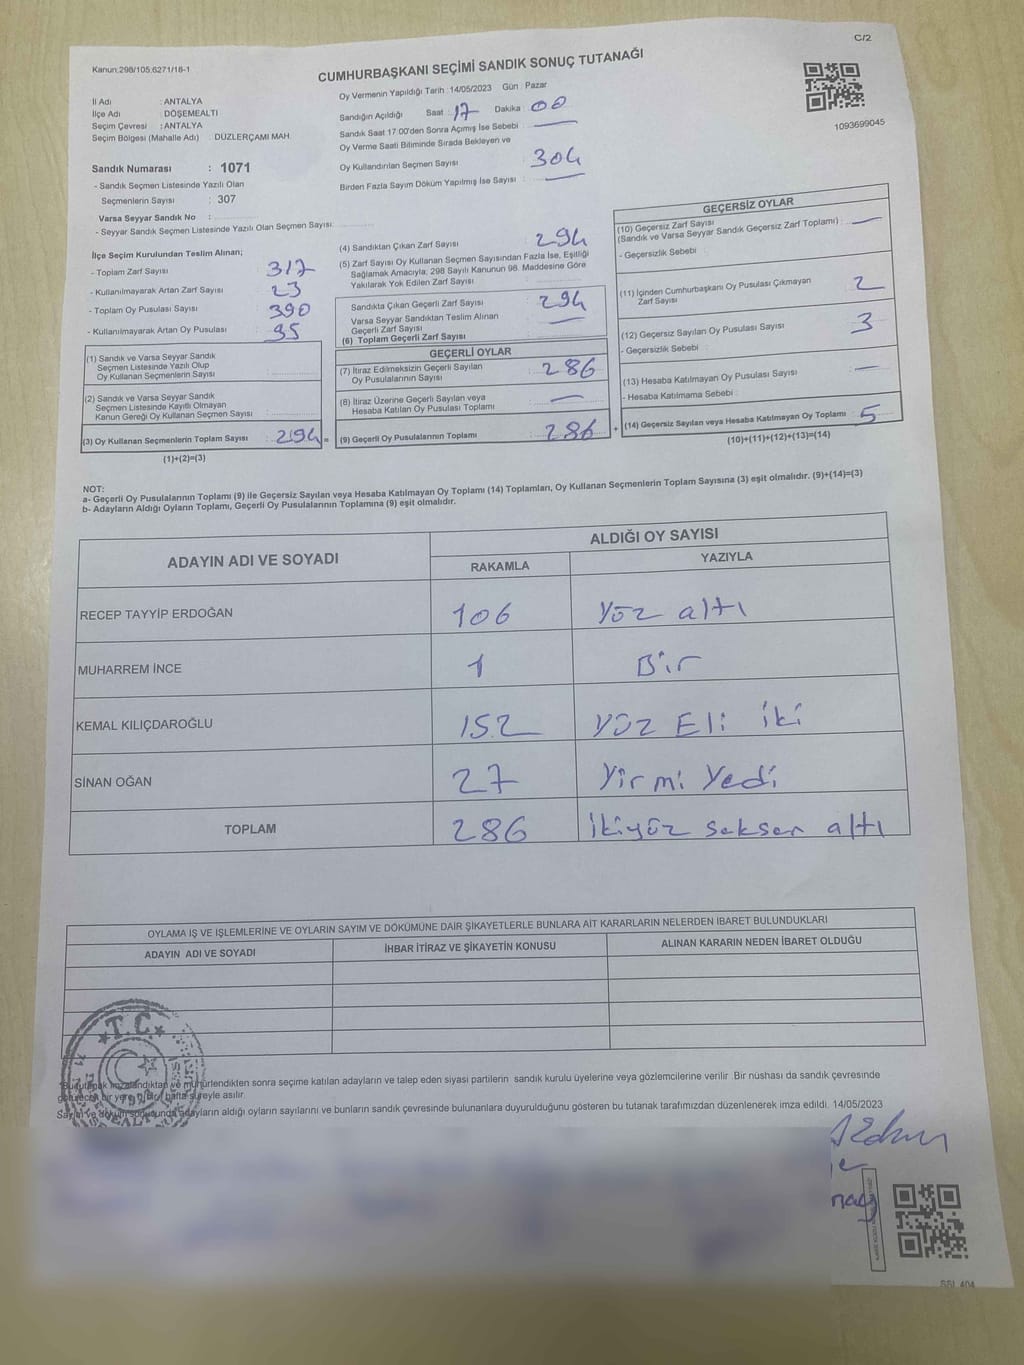 C/2
Kanun:298/105;6271/16-1
CUMHURBAŞKANI SEÇİMİ SANDIK SONUÇ TUTANAĞI
1093699045
İl Adı : ANTALYA
İlçe Adı : DÖŞEMEALTI
Seçim Çevresi : ANTALYA
Seçim Bölgesi (Mahalle Adı) : DÜZLERÇAMI MAH.
Sandık Numarası : 1071
- Sandık Seçmen Listesinde Yazılı Olan
Seçmenlerin Sayısı : 307
Varsa Seyyar Sandık No :
- Seyyar Sandık Seçmen Listesinde Yazılı Olan Seçmen Sayısı:
İlçe Seçim Kurulundan Teslim Alınan;
- Toplam Zarf Sayısı : 317
- Kullanılmayarak Artan Zarf Sayısı : 23
- Toplam Oy Pusulası Sayısı : 390
- Kullanılmayarak Artan Oy Pusulası : 95
(1) Sandık ve Varsa Seyyar Sandık
Seçmen Listesinde Yazılı Olup
Oy Kullanan Seçmenlerin Sayısı :
(2) Sandık ve Varsa Seyyar Sandık
Seçmen Listesinde Kayıtlı Olmayan
Kanun Gereği Oy Kullanan Seçmen Sayısı :
(3) Oy Kullanan Seçmenlerin Toplam Sayısı : 294 =
(1)+(2)=(3)
Oy Vermenin Yapıldığı Tarih : 14/05/2023 Gün : Pazar
Sandığın Açıldığı Saat : 17 Dakika : 00
Sandık Saat 17:00'den Sonra Açımış İse Sebebi : —
Oy Verme Saati Bitiminde Sırada Bekleyen ve
Oy Kullandırılan Seçmen Sayısı : 304
Birden Fazla Sayım Döküm Yapılmış İse Sayısı : —
(4) Sandıktan Çıkan Zarf Sayısı : 294
(5) Zarf Sayısı Oy Kullanan Seçmen Sayısından Fazla İse, Eşitliği
Sağlamak Amacıyla; 298 Sayılı Kanunun 98. Maddesine Göre
Yakılarak Yok Edilen Zarf Sayısı :
Sandıkta Çıkan Geçerli Zarf Sayısı : 294
Varsa Seyyar Sandıktan Teslim Alınan
Geçerli Zarf Sayısı : —
(6) Toplam Geçerli Zarf Sayısı :
GEÇERLİ OYLAR
(7) İtiraz Edilmeksizin Geçerli Sayılan
Oy Pusulalarının Sayısı : 286
(8) İtiraz Üzerine Geçerli Sayılan veya
Hesaba Katılan Oy Pusulası Toplamı : —
(9) Geçerli Oy Pusulalarının Toplamı : 286 +
GEÇERSİZ OYLAR
(10) Geçersiz Zarf Sayısı
(Sandık ve Varsa Seyyar Sandık Geçersiz Zarf Toplamı) : —
- Geçersizlik Sebebi :
(11) İçinden Cumhurbaşkanı Oy Pusulası Çıkmayan
Zarf Sayısı : 2
(12) Geçersiz Sayılan Oy Pusulası Sayısı : 3
- Geçersizlik Sebebi :
(13) Hesaba Katılmayan Oy Pusulası Sayısı : —
- Hesaba Katılmama Sebebi :
(14) Geçersiz Sayılan veya Hesaba Katılmayan Oy Toplamı : 5
(10)+(11)+(12)+(13)=(14)
NOT:
a- Geçerli Oy Pusulalarının Toplamı (9) ile Geçersiz Sayılan veya Hesaba Katılmayan Oy Toplamı (14) Toplamları, Oy Kullanan Seçmenlerin Toplam Sayısına (3) eşit olmalıdır. (9)+(14)=(3)
b- Adayların Aldığı Oyların Toplamı, Geçerli Oy Pusulalarının Toplamına (9) eşit olmalıdır.
ADAYIN ADI VE SOYADI ALDIĞI OY SAYISI
RAKAMLA YAZIYLA
RECEP TAYYİP ERDOĞAN 106 Yüz altı
MUHARREM İNCE 1 Bir
KEMAL KILIÇDAROĞLU 152 Yüz Eli iki
SİNAN OĞAN 27 Yirmi Yedi
TOPLAM 286 İkiyüz seksen altı
OYLAMA İŞ VE İŞLEMLERİNE VE OYLARIN SAYIM VE DÖKÜMÜNE DAİR ŞİKAYETLERLE BUNLARA AİT KARARLARIN NELERDEN İBARET BULUNDUKLARI
ADAYIN ADI VE SOYADI İHBAR İTİRAZ VE ŞİKAYETİN KONUSU ALINAN KARARIN NEDEN İBARET OLDUĞU
T.C.
Bu tutanak imzalandıktan ve mühürlendikten sonra seçime katılan adayların ve talep eden siyasi partilerin sandık kurulu üyelerine veya gözlemcilerine verilir. Bir nüshası da sandık çevresinde
görülecek bir yere, bir hafta süreyle asılır.
Sayım ve döküm sonucunda adayların aldığı oyların sayılarını ve bunların sandık çevresinde bulunanlara duyurulduğunu gösteren bu tutanak tarafımızdan düzenlenerek imza edildi. 14/05/2023
SSL 404